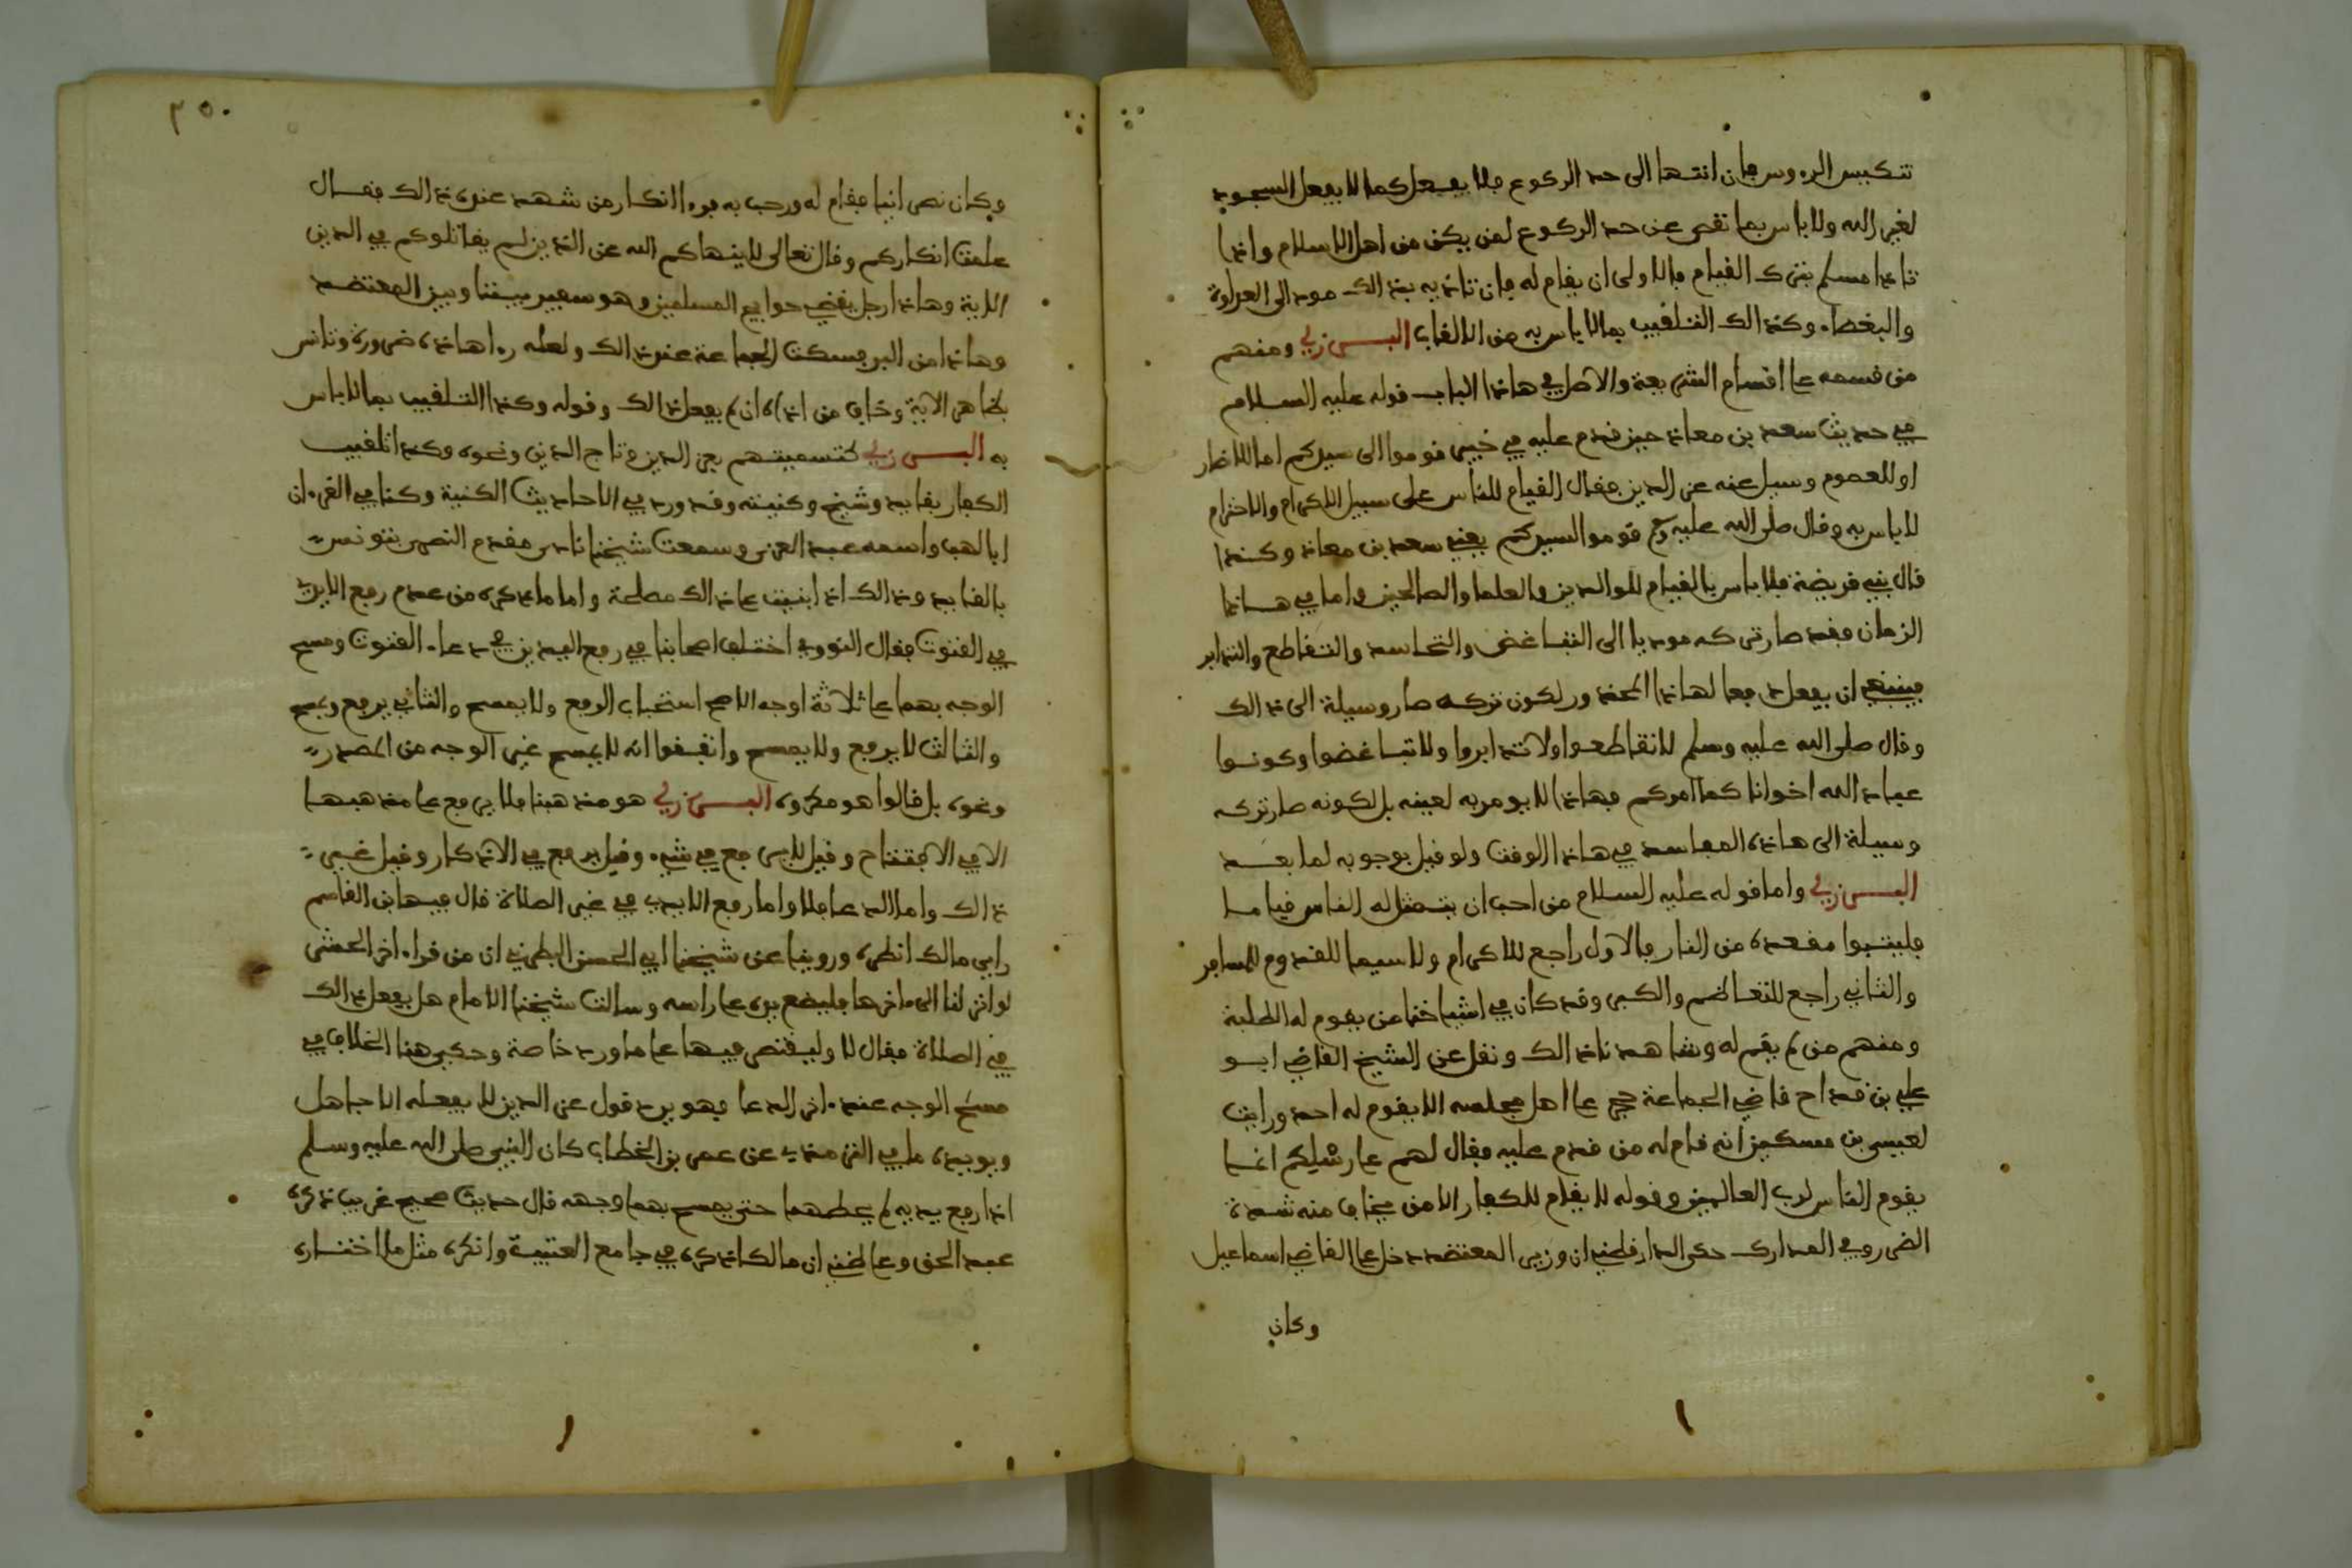 تنكيس الرءوس فان انتها الى حد الركوع فلا يفعل كما لا يفعل السجود
لغير الله ولا باس بما نقص عن حد الركوع لمن يكن من اهل الاسلام واذا
تاذا مسلم بترك القيام فالاولى ان يقام له فان تاذيه بذالك مودالى العداوة
والبغضاء وكذالك التلقيب بمالا باس به من الالقاب البرزلي ومنهم
من قسمه على اقسام الشريعة والاصل في هاذا الباب قوله عليه السلام
في حديث سعد بن معاذ حين قدم عليه في خيبر قوموا الى سيدكم اما للانصار
او للعموم وسيل عنه عز الدين فقال القيام للناس على سبيل الاكرام والاحترام
لا باس به وقال صلى الله عليه وسلم قوموا لسيدكم يعني سعد بن معاذ وكذا
قال بني قريضة فلا باس بالقيام للوالدين والعلما والصالحين واما في هاذا
الزمان فقد صار تركه موديا الى التباغض والتحاسد والتقاطع والتدابر
فينبغي ان يفعل دفعا لهاذا المحذور لكون تركه صار وسيلة الى ذالك
وقال صلى الله عليه وسلم لا تقاطعوا ولا تدابروا ولا تباغضوا وكونوا
عباد الله اخوانا كما امركم فهاذا لا يومر به لعينه بل لكونه صار تركه
وسيلة الى هاذه المفاسد في هاذا الوقت ولو قيل بوجوبه لما بعد
البرزلي واما قوله عليه السلام من احب ان يتمثل له الناس قياما
فليتبوا مقعده من النار فالاول راجع للاكرام ولا سيما للقدوم للمسافر
والثاني راجع للتعاظم والكبر وقد كان في اشياخنا من يقوم له الطلبة
ومنهم من لم يقم له وشاهدنا ذالك ونقل عن الشيخ القاضي ابو
علي بن قداح قاضي الجماعة حجر على اهل مجلسه الا يقوم له احد ورايت
لعيسى بن مسكين انه قام له من قدم عليه فقال لهم على رسلكم انما
يقوم الناس لرب العالمين وقوله لا يقام للكفار الا من يخاف منه شدة
الضر وفي المدارك حكى الدارقطني ان وزير المعتضد دخل على القاضي اسماعيل
وكان
٢٥٠
وكان نصرانيا فقام له ورحب به فرءا انكار من شهد عنده ذالك فقال
علمت انكاركم وقال تعالى لا ينهاكم الله عن الذين لم يقاتلوكم في الدين
الاية وهاذا رجل يقضي حوايج المسلمين وهو سفير بيننا وبين المعتضد
وهاذا من البر فسكت الجماعة عند ذالك ولعله رءا هاذه ضرورة وتانس
بظاهر الاية وخاف من اذاه ان لم يفعل ذالك وقوله وكذا التلقيب بما لا باس
به البرزلي كتسميتهم بعز الدين وتاج الدين ونحوه وكذا تلقيب
الكفار بقايد وشيخ وكنيته وقد ورد في الاحاديث الكنية وكذا في القرءان
ابا لهب واسمه عبد العزى وسمعت شيخنا نادى مقدم النصرى بتونس
بالقايد وذالك اذا انبنيت على ذالك مصلحة واما ما ذكره من عدم رفع الايدي
في القنوت فقال النووي اختلف اصحابنا في رفع اليدين في دعاء القنوت ومسح
الوجه بهما على ثلاثة اوجه الاصح استحباب الرفع ولا يمسح والثاني يرفع ويمسح
والثالث لا يرفع ولا يمسح واتفقوا انه لا يمسح غير الوجه من الصدر
ونحوه بل قالوا هو مكروه البرزلي هو مذهبنا فلا يرفع على مذهبها
الا في الافتتاح وقيل لا يرفع في شيء وقيل يرفع في الاذكار وقيل غير
ذالك واما الدعا فلا واما رفع الايدي في غير الصلاة قال فيها ابن القاسم
راى مالك انظره وروينا عن شيخنا ابي الحسن البطرني ان من قراء اخر الحشر
لو انزلنا الىءاخرها فليضع يده على راسه وسالت شيخنا الامام هل يفعل ذالك
في الصلاة فقال لا وليقتصر فيها على ما ورد خاصة وحكي هنا الخلاف في
مسح الوجه عندءاخر الدعا فهو يرد قول عز الدين لا يفعله الا جاهل
ويويده ما في الترمذي عن عمر بن الخطاب كان النبي صلى الله عليه وسلم
اذا رفع يديه لم يحطهما حتى يمسح بهما وجهه قال حديث صحيح غريب ذكره
عبد الحق وعلى ظني ان مالكا ذكره في جامع العتبية وانكره مثل ما اختاره